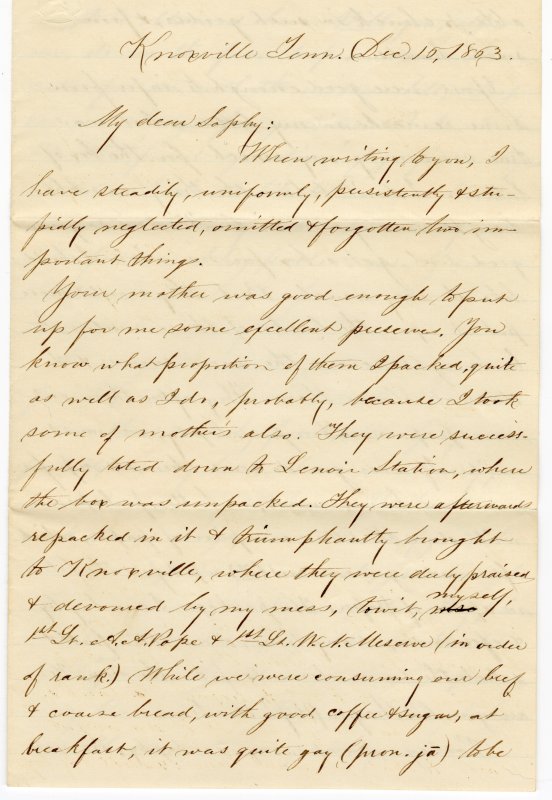 Knoxville Tenn. Dec. 15, 1863.
My dear Sophy:
When writing to you, I
have steadily, uniformly, persistently & stu-
pidly neglected, omitted & forgotten two im-
portant things.
Your mother was good enough to put
up for me some excellent preserves. You
know what proportion of them I packed, quite
as well as I do, probably, because I took
some of mother's also. They were success-
fully toted down to Lenoir Station, where
the box was unpacked. They were afterwards
repacked in it & triumphantly brought
to Knoxville, where they were duly praised
& devoured by my mess, towit, myself,
1st Lt. A. A. Pope & 1st Lt. W. N. Meserve (in order
of rank.) While we were consuming our beef
& coarse bread, with good coffee & sugar, at
breakfast, it was quite gay (pron. jā) to be